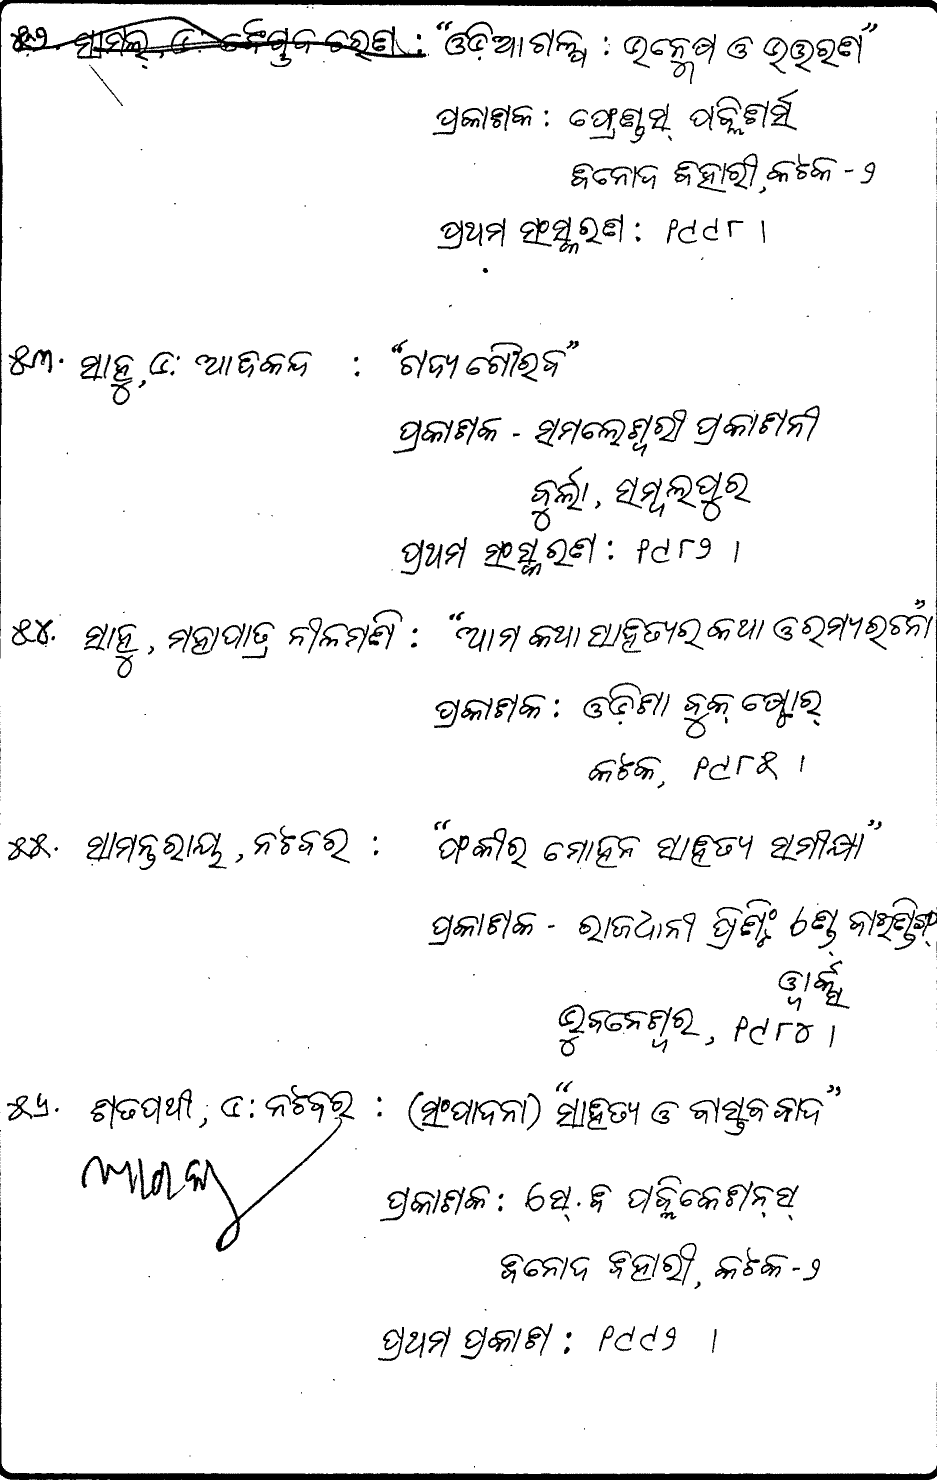 ୫୨. ସାମଲ, ଡ: ବୈଷ୍ଣବ ଚରଣ : "ଓଡ଼ିଆ ଗଳ୍ପ : ଉନ୍ମେଷ ଓ ଉତ୍ତରଣ"
ପ୍ରକାଶକ : ଫ୍ରେଣ୍ଡସ୍ ପବ୍ଲିଶର୍ସ
ବିନୋଦ ବିହାରୀ, କଟକ - ୨
ପ୍ରଥମ ସଂସ୍କରଣ : ୧୯୯୮ ।
୫୩. ସାହୁ, ଡ: ଆଦିକନ୍ଦ : "ଗଦ୍ୟ ଗୌରବ"
ପ୍ରକାଶକ - ସମଲେଶ୍ୱରୀ ପ୍ରକାଶନୀ
ବୁର୍ଲା, ସମ୍ବଲପୁର
ପ୍ରଥମ ସଂସ୍କରଣ : ୧୯୮୨ ।
୫୪. ସାହୁ, ମହାପାତ୍ର ନୀଳମଣି : "ଆମ କଥା ସାହିତ୍ୟର କଥା ଓ ରମ୍ୟରଚନା"
ପ୍ରକାଶକ : ଓଡ଼ିଶା ବୁକ୍ ଷ୍ଟୋର୍
କଟକ, ୧୯୮୫ ।
୫୫. ସାମନ୍ତରାୟ, ନଟବର : "ଫକୀର ମୋହନ ସାହିତ୍ୟ ସମୀକ୍ଷା"
ପ୍ରକାଶକ - ରାଜଧାନୀ ପ୍ରିଣ୍ଟିଂ ଏଣ୍ଡ୍ ବାଇଣ୍ଡିଙ୍ଗ୍
ୱାର୍କ୍ସ
ଭୁବନେଶ୍ୱର, ୧୯୮୪ ।
୫୬. ଶତପଥୀ, ଡ: ନଟବର : (ସଂପାଦନା) "ସାହିତ୍ୟ ଓ ବାସ୍ତବବାଦ"
ପ୍ରକାଶକ : ଏସ୍. ବି ପବ୍ଲିକେଶନ୍‌ସ୍
ବିନୋଦ ବିହାରୀ, କଟକ - ୨
ପ୍ରଥମ ପ୍ରକାଶ : ୧୯୯୨ ।